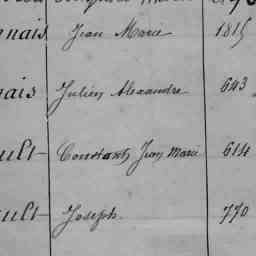 nais Jean Marie 1815
nais Julien Alexandre 643
ult Constant, Jean Marie 614
ult Joseph 770